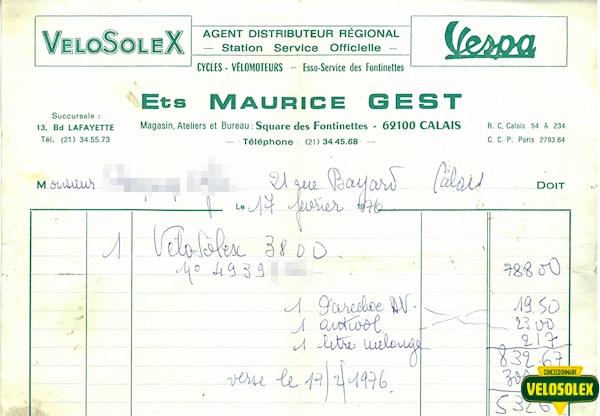 VELOSOLEX
AGENT DISTRIBUTEUR RÉGIONAL
— Station Service Officielle —
Vespa
CYCLES - VÉLOMOTEURS — Esso-Service des Fontinettes
Ets MAURICE GEST
Succursale :
13, Bd LAFAYETTE
Tél. (21) 34.55.73
Magasin, Ateliers et Bureau : Square des Fontinettes - 62100 CALAIS
— Téléphone : (21) 34.45.68 —
R. C. Calais 54 A 234
C. C. P. Paris 2793.64
Monsieur 21 rue Bayard Calais DOIT
Le 17 février 1976
1 VéloSolex 3800
N° 4939 788 00
1 Parechoc AV. 19.50
1 antivol 23 00
1 litre mélange 2 17
832.67
versé le 17/2/1976.
CONCESSIONNAIRE
VELOSOLEX